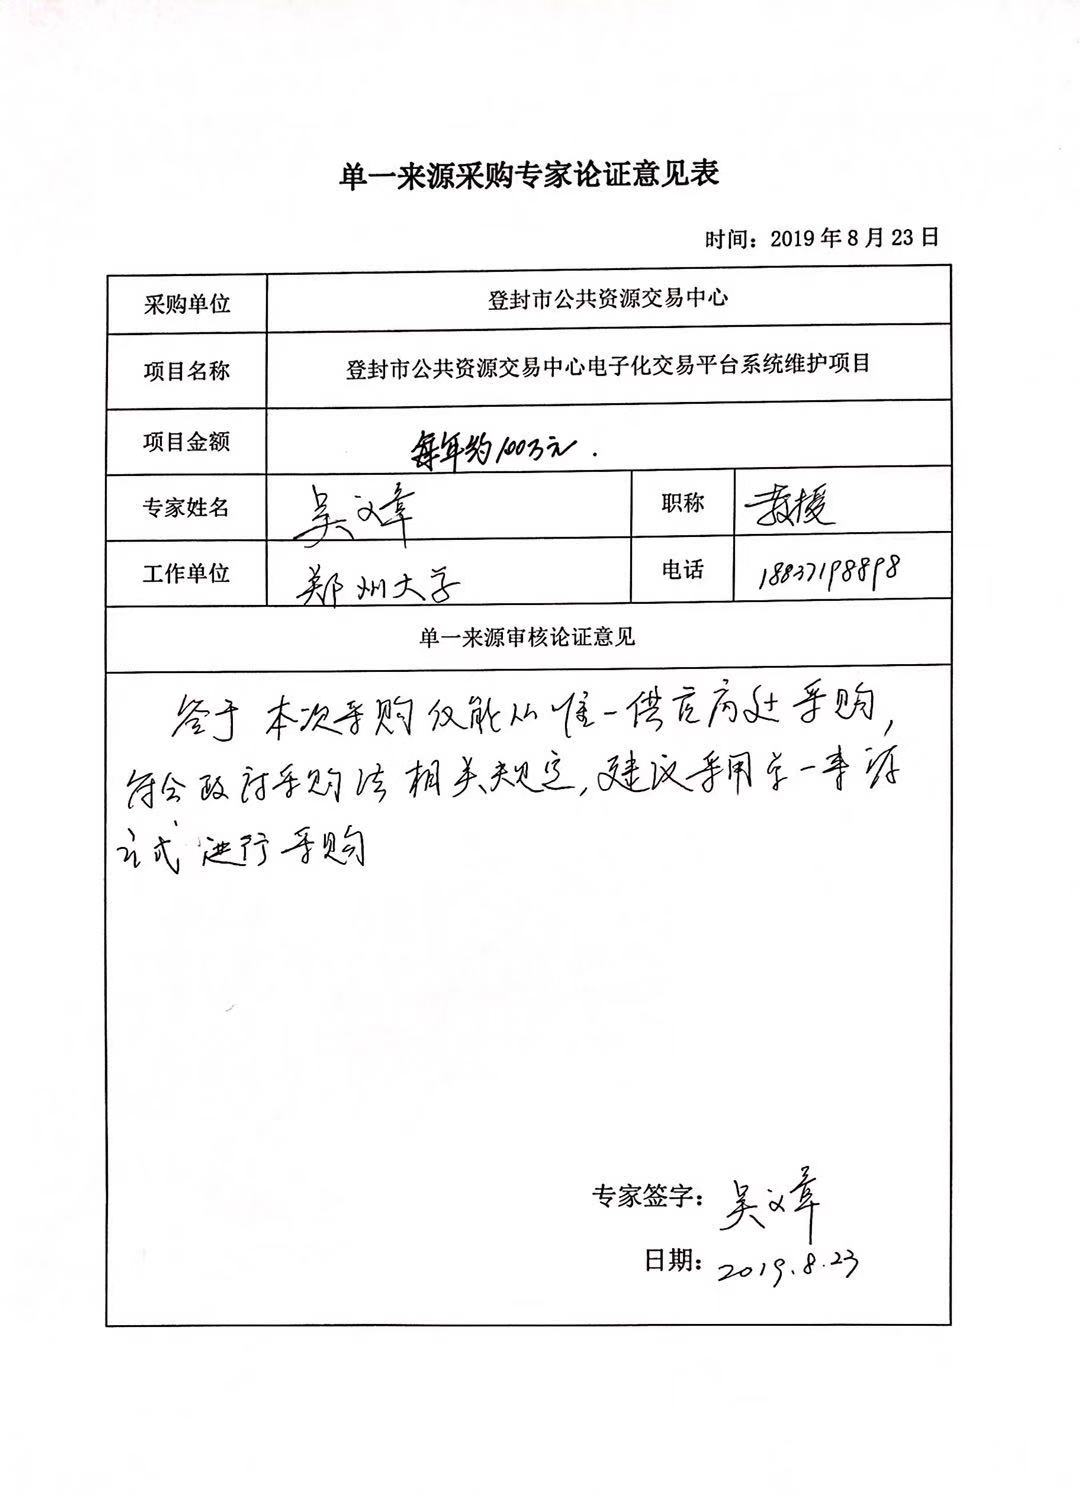 单一来源采购专家论证意见表
时间：2019年8月23日
采购单位 登封市公共资源交易中心
项目名称 登封市公共资源交易中心电子化交易平台系统维护项目
项目金额 每年约100万元.
专家姓名 吴文章 职称 教授
工作单位 郑州大学 电话 18837198898
单一来源审核论证意见
鉴于本次采购仅能从唯一供应商处采购,
符合政府采购法相关规定,建议采用单一来源
方式进行采购
专家签字：吴文章
日期：2019.8.23